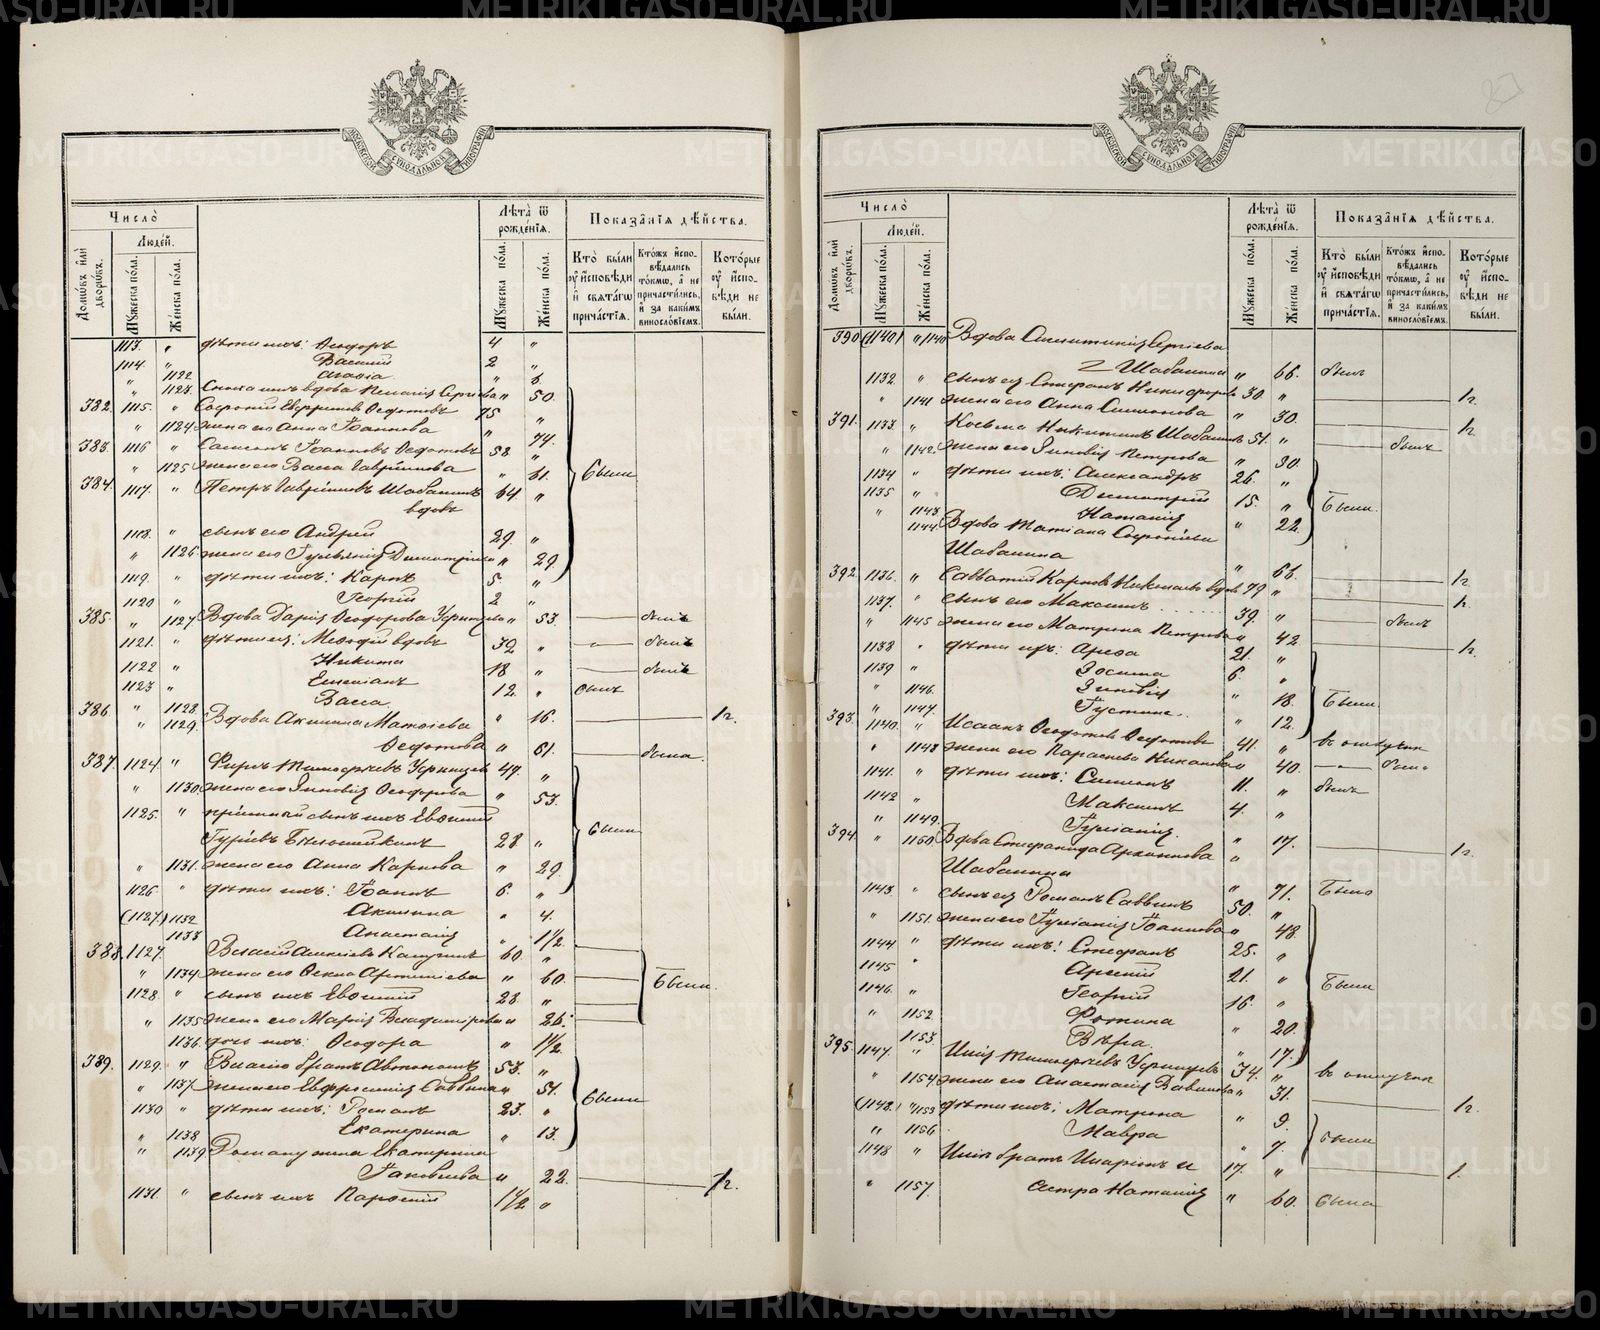 METRIKI.GASO-URAL.RU
МОСКОВСКОЙ СѴНОДАЛЬНОЙ ТИПОГРАФІИ
Число̀
Людей.
Домѡвъ и҆лѝ дворѡвъ.
Мꙋжеска по́ла.
Же́нска по́ла.
Лѣ́та ѿ рожде́нїѧ.
Мꙋжеска по́ла.
Же́нска по́ла.
Показа̑нїѧ дѣ́йства.
Кто̀ бы́ли ᲂу҆ и҆́сповѣди и҆ свѧта́гѡ прича́стїѧ.
Кто́жъ и҆сповѣ́дались то́кмѡ, а҆ не причасти́лись, и҆ за каки́мъ виносло́вїемъ.
Кото́рые ᲂу҆ и҆́сповѣди не бы́ли.
1113. " дѣти ихъ: Ѳеодоръ 4 "
1114. " Василій 2 "
" 1122 Агафія " 6
" 1123. вдова Пелагія Сергіева " 50.
382. 1115. " Софоній Ѳедотовъ 75 "
" 1124 жена его Анна Іоаннова " 74.
383. 1116 " Симеонъ Іоанновъ Ѳедотовъ 58 "
" 1125 жена его Васса Гавріилова " 61. были
384. 1117. " Петръ Гавріиловъ Шабалинъ 64 "
вдовъ
1118. " сынъ его Андрей 29. "
" 1126. жена его Іуліанія Димитріева " 29
1119. " дѣти ихъ: Карпъ 5. "
1120 " Георгій 2 "
385. " 1127 Вдова Дарія Ѳеодорова " 53. былъ
1121. " дѣти ея: Меѳодій вдовъ 39 " былъ
1122 " Никита 18 " былъ
1123 " Емеліанъ 12. " былъ
" 1128. Васса " 16. 1/2.
386. " 1129. Вдова Акилина Матѳіева
Ѳедотова " 61. была.
387. 1124. " Фирсъ Тимоѳеевъ 49. "
" 1130. жена его Зиновія Ѳеодорова " 53.
1125. " пріемный сынъ ихъ Евѳимій
Гуріевъ 28 " были
" 1131. жена его Анна Карпова " 29.
1126. " дѣти ихъ: Іоаннъ 6. "
(1127.) 1132 Акилина " 4.
1133 Анастасія " 1 1/2.
388. 1127. " Власій Алексіевъ 60. "
" 1134 жена его Ѳекла Артеміева " 60. Были.
1128. " сынъ ихъ Евѳимій 28. "
" 1135 жена его Марія Владимірова " 26.
" 1136. дочь ихъ: Ѳеодора " 1 1/2.
389. 1129. " Власію братъ Автономъ 53. "
" 1137. жена его Евфросинія Саввина " 51. были
1130 " дѣти ихъ: Романъ 23. "
" 1138 Екатерина " 13.
" 1139 Роману жена Екатерина
Іаковлева " 22. 1/2.
1131. " сынъ ихъ 1 1/2 "
Число̀
Людей.
Домѡвъ и҆лѝ дворѡвъ.
Мꙋжеска по́ла.
Же́нска по́ла.
Лѣ́та ѿ рожде́нїѧ.
Мꙋжеска по́ла.
Же́нска по́ла.
Показа̑нїѧ дѣ́йства.
Кто̀ бы́ли ᲂу҆ и҆́сповѣди и҆ свѧта́гѡ прича́стїѧ.
Кто́жъ и҆сповѣ́дались то́кмѡ, а҆ не причасти́лись, и҆ за каки́мъ виносло́вїемъ.
Кото́рые ᲂу҆ и҆́сповѣди не бы́ли.
390 (1140) " 1140 Вдова Сергіева
Шабалина " 66. былъ
1132. " сынъ ея Стефанъ Никифоровъ 30. " 1/2.
" 1141 жена его Анна Симеонова " 30. 1/2.
391. 1133 " Косьма Никитинъ Шабалинъ 51. " былъ
" 1142. жена его Зиновія Петрова " 30.
1134 " дѣти ихъ: Александръ 26. "
1135 " Димитрій 15. " Были.
" 1143 Наталія " 22.
1144. Вдова Татіана Софоніева
Шабалина " 66. 1/2.
392. 1136. " Савватій Карповъ вдовъ 79 " 1/2.
1137. " сынъ его Максимъ 39. " былъ
" 1145 жена его Матрона Петрова " 42. 1/2.
1138 " дѣти ихъ: Арефа 21. "
1139 " Зосима 6. "
" 1146. Зиновія " 18. Были.
" 1147. Іустина. " 12.
393. 1140. " Исаакъ Ѳеодотовъ Ѳедотовъ 41. " въ отлучкѣ
" 1148 жена его Параскева " 40. была
1141. " дѣти ихъ: Симеонъ 11. " былъ
1142 " Максимъ 4. "
" 1149. Іуліанія. " 17. 1/2.
394. " 1150 Вдова Стефанида Архиппова
Шабалина " 71. Была
1143. " сынъ ея Романъ Саввинъ 50. "
" 1151. жена его Іуліанія Іоаннова " 48.
1144 " дѣти ихъ: Стефанъ 25. "
1145 " Арсеній 21. "
1146. " Георгій 16. " Были
" 1152 Фотина " 20.
1153. Вѣра. " 17.
395. 1147. " Илія Тимоѳеевъ 34. " въ отлучкѣ
" 1154 жена его Анастасія " 31. 1/2.
(1148.) " 1155 дѣти ихъ: Матрона " 9.
" 1156 Мавра " 7. были
1148 " Иліи братъ Иларіонъ и 17. " 1.
" 1157. сестра Наталія " 60. была